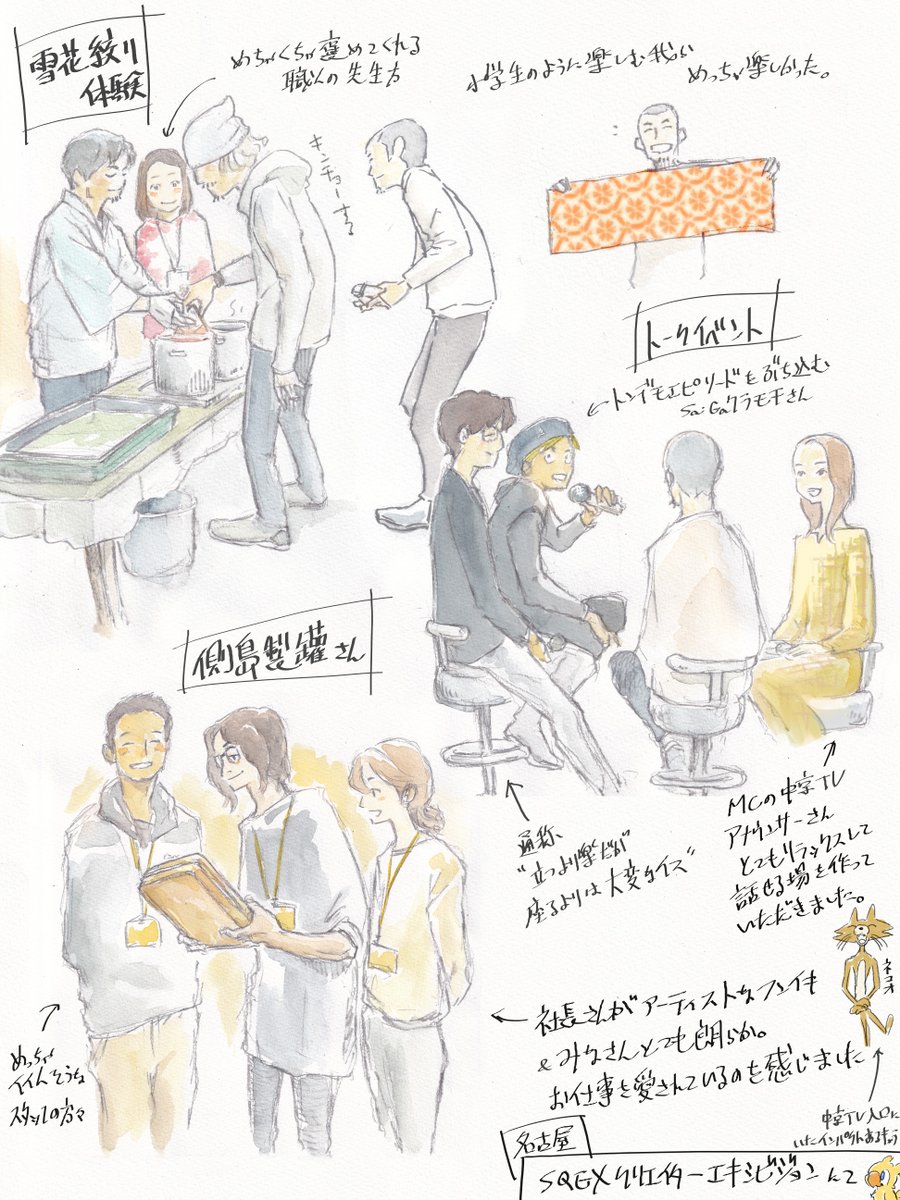 雪花絞り
体験
めちゃくちゃ褒めてくれる
職人の先生方
小学生のように楽しむ我々
めっちゃ楽しかった。
キンチョーする
トークイベント
トンデモエピソードをぶち込む
SaGaクラモチさん
側島製罐さん
通称
"立つより楽だが
座るよりは大変なイス"
MCの中京TV
アナウンサーさん
とてもリラックスして
話せる場を作って
いただきました。
ネコオ
社長さんがアーティストなフンイキ
& みなさんとても朗らか。
お仕事を愛されているのを感じました
めっちゃ
イイ人そうな
スタッフの方々
中京TV入口に
いたインパクトある
名古屋
SQEXクリエイターエキシビジョンにて